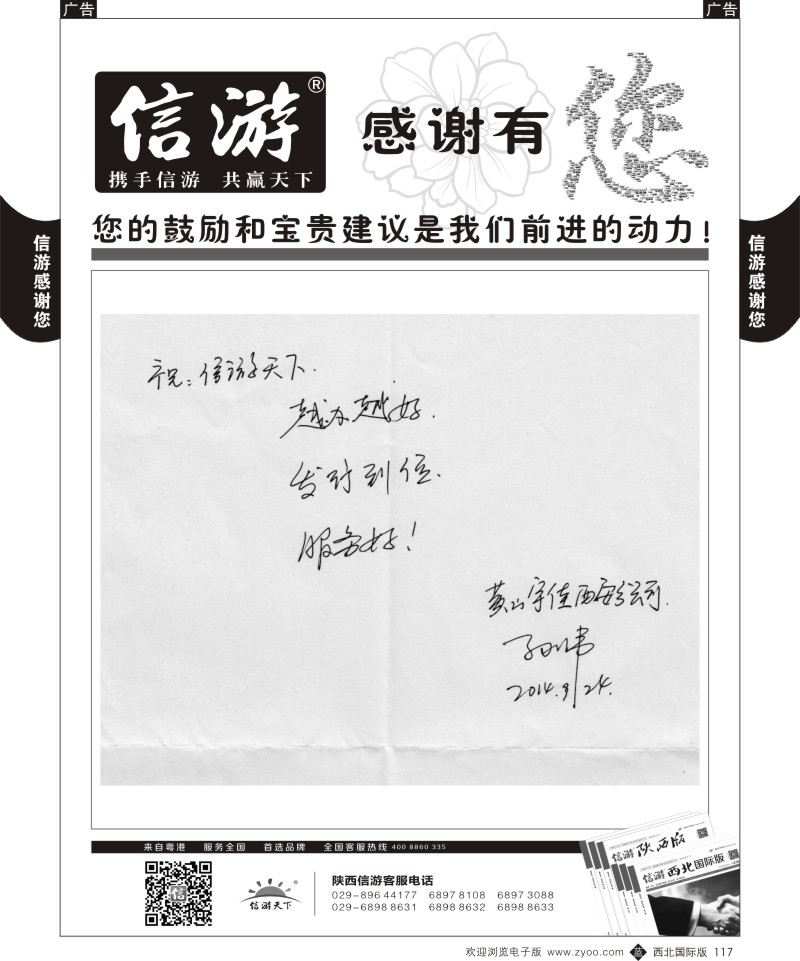 广告
广告
信游®
携手信游 共赢天下
感谢有您
您的鼓励和宝贵建议是我们前进的动力!
信游感谢您
信游感谢您
祝:信游天下.
越办越好.
发行到位.
服务好!
黄山宇佳西安分公司.
2014.9/24.
来自粤港 服务全国 首选品牌 全国客服热线 400 8860 335
信游
信游天下
陕西信游客服电话
029-896 44177 6897 8108 6897 3088
029-6898 8631 6898 8632 6898 8633
信游 陕西版
信游 西北国际版
欢迎浏览电子版 www.zyoo.com 蓝 西北国际版 117